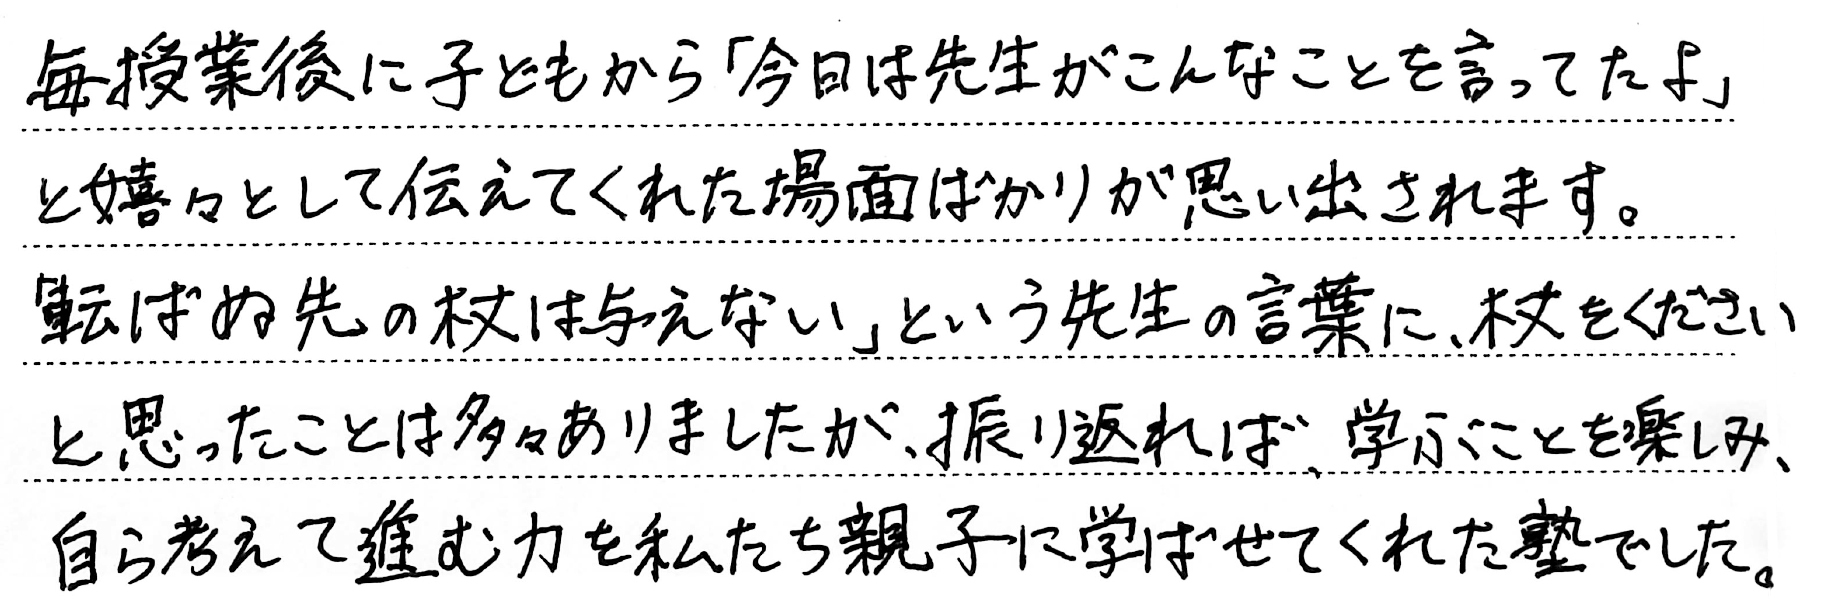 毎授業後に子どもから「今日は先生がこんなことを言ってたよ」
と嬉々として伝えてくれた場面ばかりが思い出されます。
「転ばぬ先の杖は与えない」という先生の言葉に、杖をください
と思ったことは多々ありましたが、振り返れば、学ぶことを楽しみ、
自ら考えて進む力を私たち親子に学ばせてくれた塾でした。